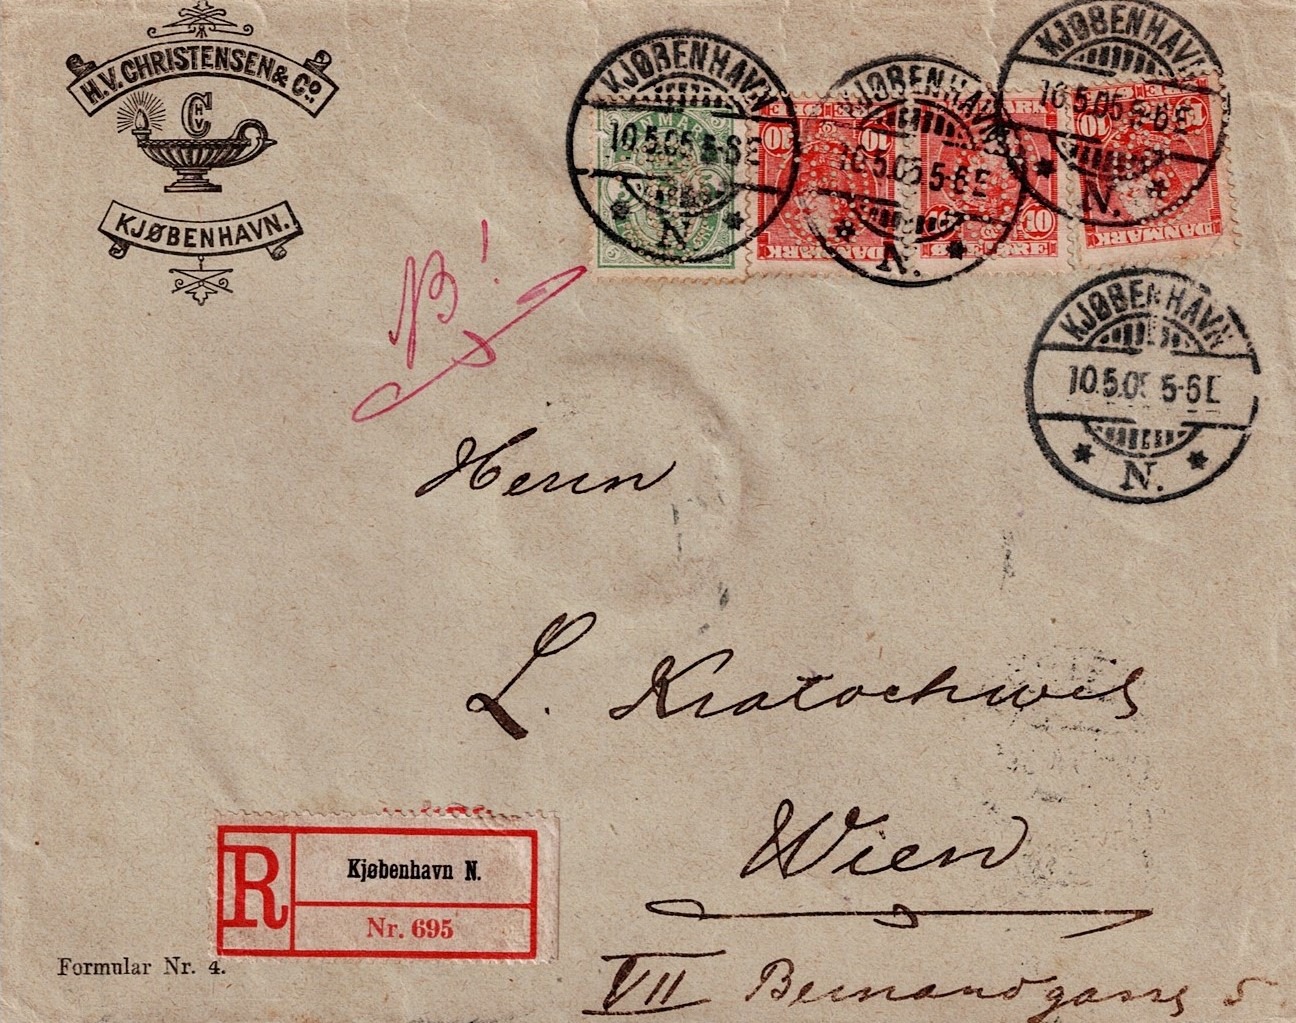 H.V. CHRISTENSEN & Co.
C
HV
KJØBENHAVN.
KJØBENHAVN
10.5.05 5-6E
N.
KJØBENHAVN
10.5.05 5-6E
N.
KJØBENHAVN
10.5.05 5-6E
N.
DANMARK
10
10
DANMARK
10
DANMARK
KJØBENHAVN
10.5.05 5-6E
N.
NB!
Herrn
L. Kratochwil
Wien
VII Bernardgasse 5
R
Kjøbenhavn N.
Nr. 695
Formular Nr. 4.